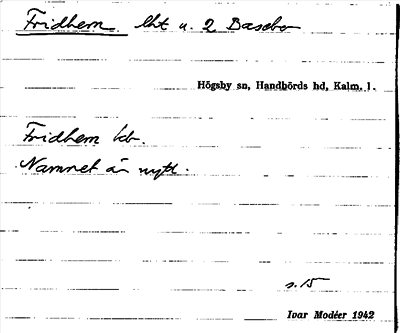 Fridhem lht u. 2 Basebo
Högsby sn, Handbörds hd, Kalm. l.
Fridhem lht.
Namnet är nytt.
s. 15
Ivar Modéer 1942